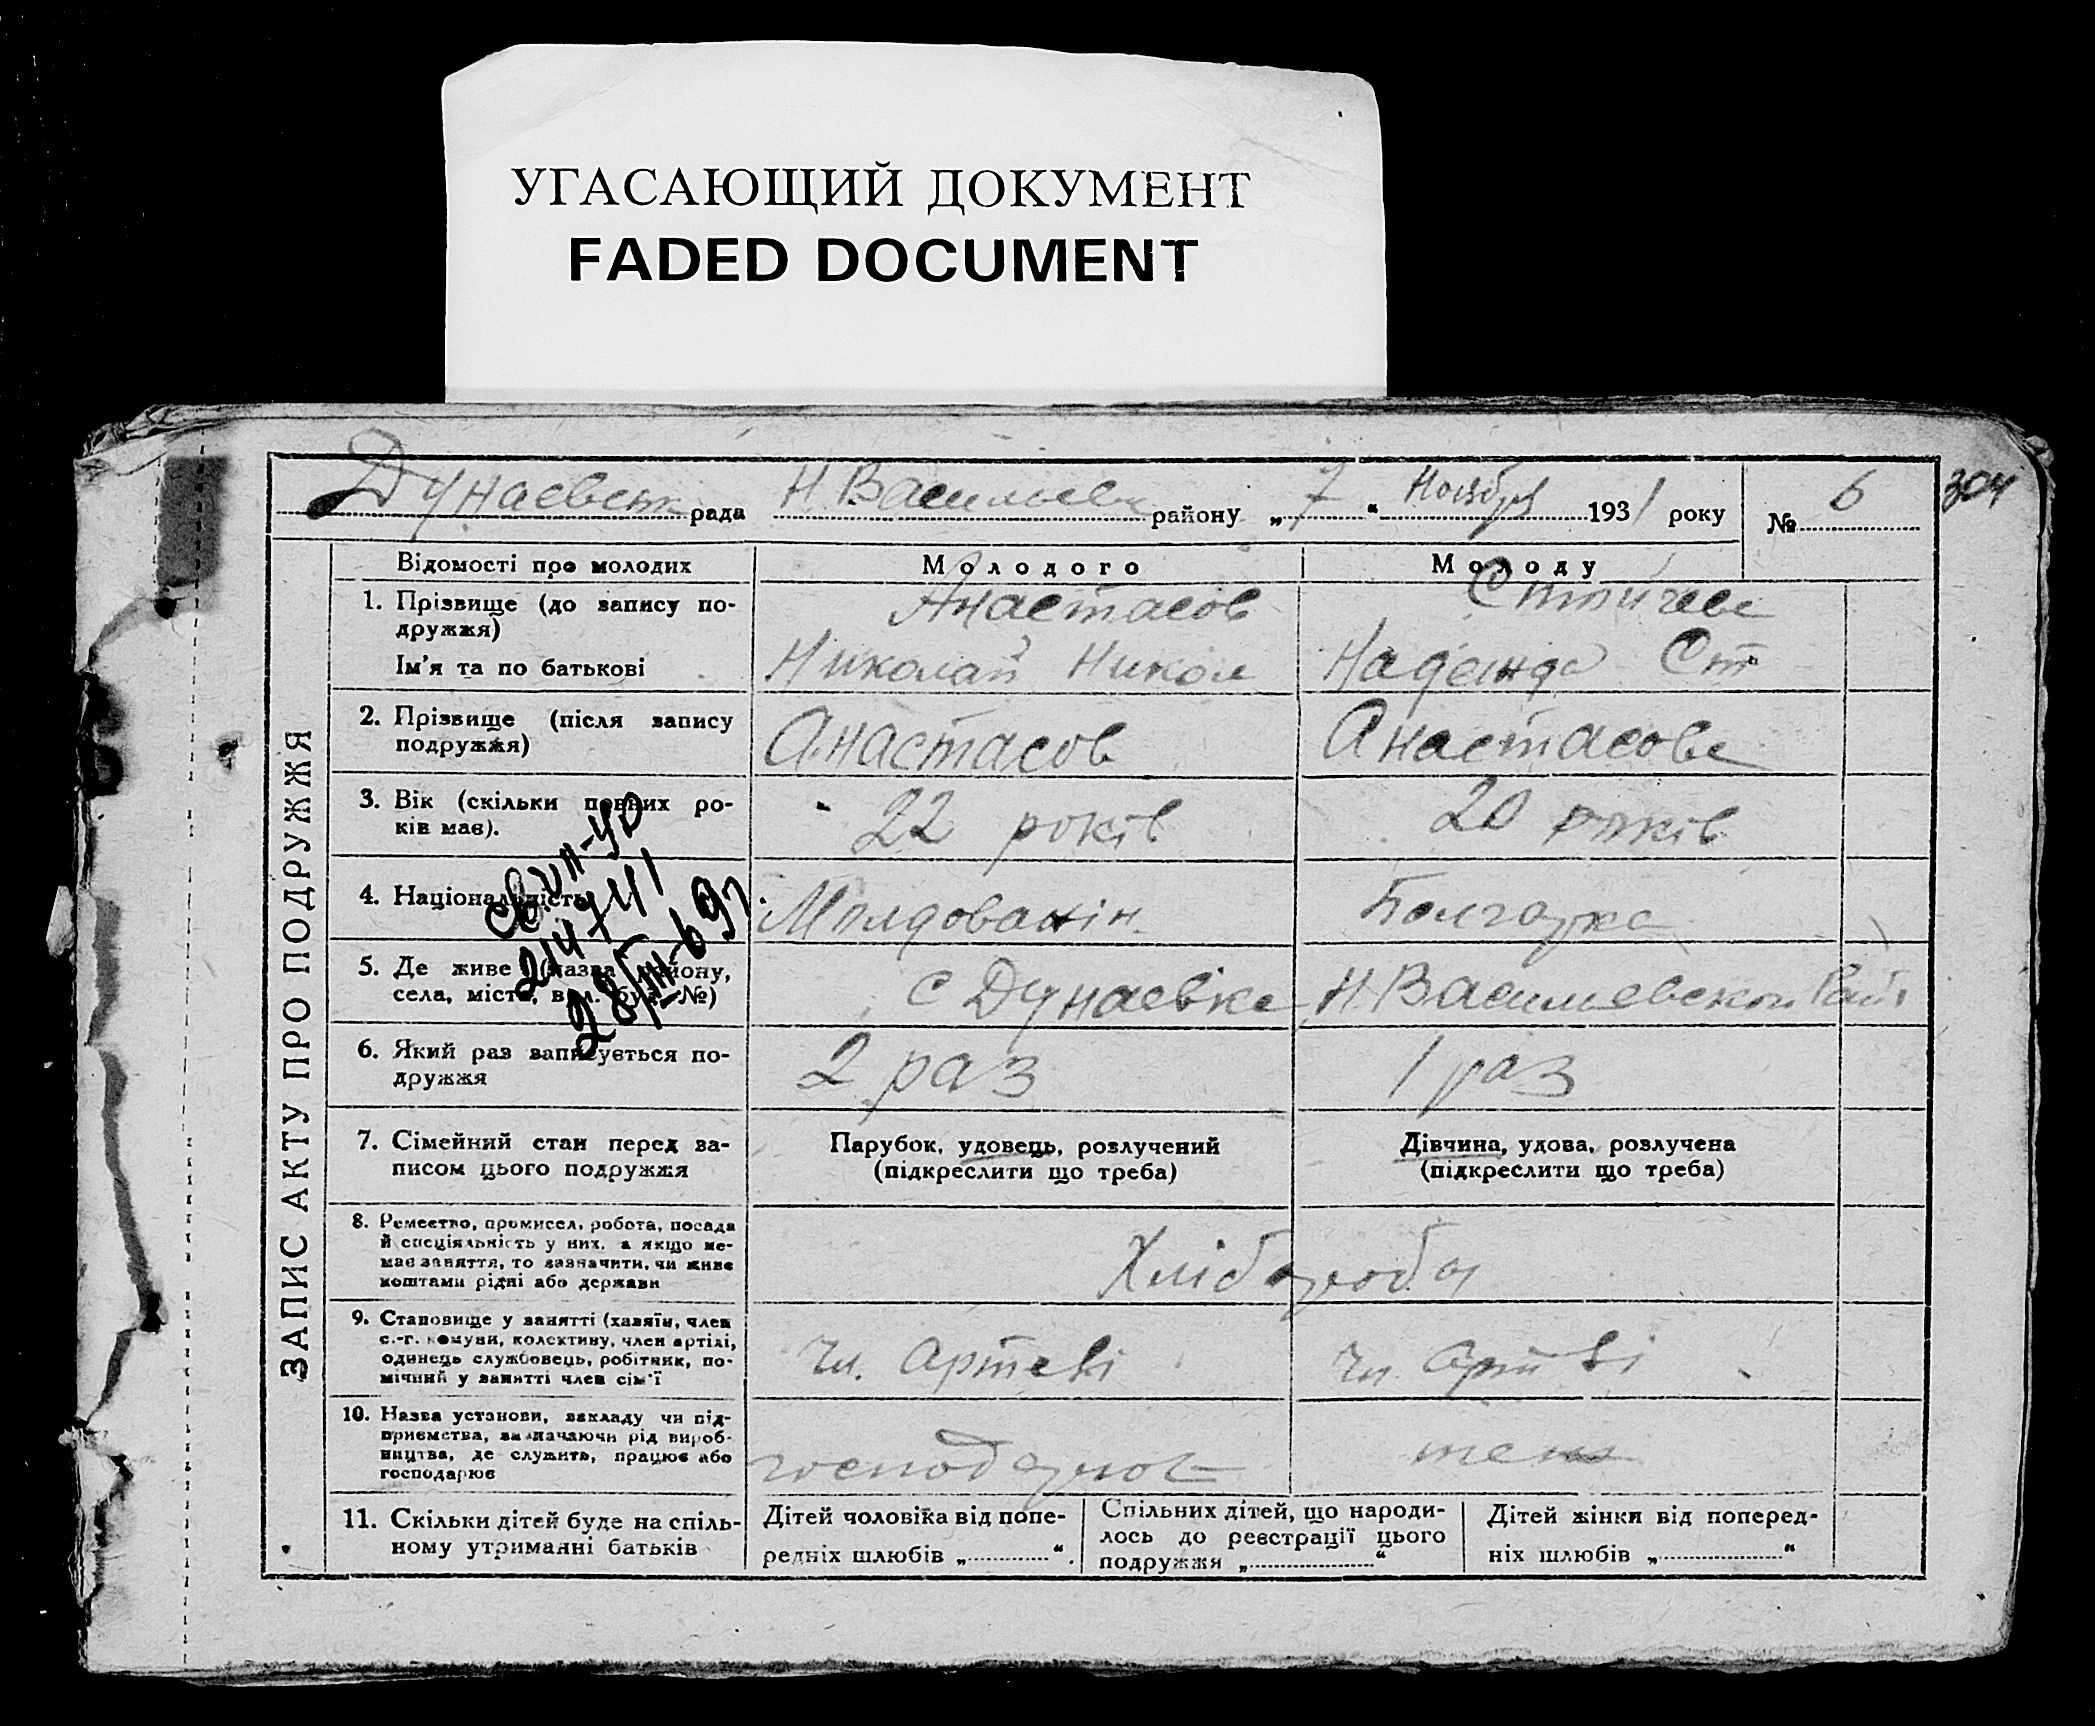 УГАСАЮЩИЙ ДОКУМЕНТ
FADED DOCUMENT
Дунаевськ рада Н Васильевк району „7“ Ноября 1931 року № 6 304
ЗАПИС АКТУ ПРО ПОДРУЖЖЯ
Відомості про молодих Молодого Молоду
1. Прізвище (до запису по- Анастасов Стойчева
дружжя)
Ім'я та по батькові Николай Никол Надежда Ст
2. Прізвище (після запису Анастасов Анастасова
подружжя)
3. Вік (скільки повних ро- 22 років 20 років
ків має).
4. Національність Молдованін Болгарка
5. Де живе (назва району, с Дунаевке Н Васильевской Рай
села, міста, вул. буд. №)
Св VII-УР
214741
28/III-69г
6. Який раз записується по- 2 раз 1 раз
дружжя
7. Сімейний стан перед за- Парубок, удовець, розлучений Дівчина, удова, розлучена
писом цього подружжя (підкреслити що треба) (підкреслити що треба)
8. Ремество, промисел, робота, посада
й спеціяльність у них, а якщо не-
має заняття, то зазначити, чи живе Хлібороби
коштами рідні або держави
9. Становище у занятті (хазяїн, член
с.-г. комуни, колективу, член артілі, чл. Артелі чл. Артелі
одинець службовець, робітник, по-
мічний у занятті член сім'ї
10. Назва установи, закладу чи під-
приємства, зазначаючи рід вироб-
ництва, де служить, працює або господарює теж
господарює
11. Скільки дітей буде на спіль- Дітей чоловіка від попе- Спільних дітей, що народи- Дітей жінки від поперед-
ному утриманні батьків редніх шлюбів „ “. лось до реєстрації цього ніх шлюбів „ “
подружжя „ “